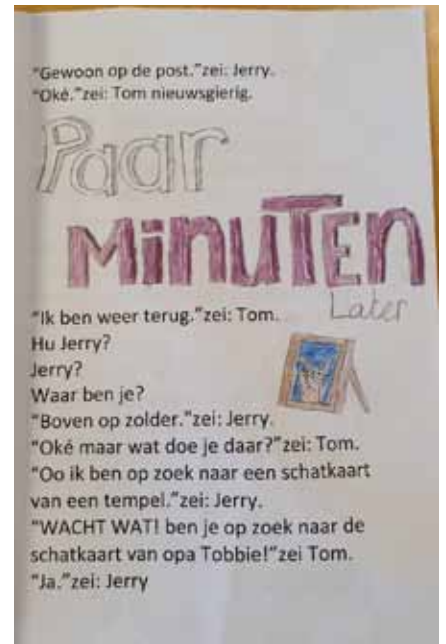 "Gewoon op de post."zei: Jerry.
"Oké."zei: Tom nieuwsgierig.
Paar
MINUTEN
Later
"Ik ben weer terug."zei: Tom.
Hu Jerry?
Jerry?
Waar ben je?
"Boven op zolder."zei: Jerry.
"Oké maar wat doe je daar?"zei: Tom.
"Oo ik ben op zoek naar een schatkaart
van een tempel."zei: Jerry.
"WACHT WAT! ben je op zoek naar de
schatkaart van opa Tobbie!"zei Tom.
"Ja."zei: Jerry